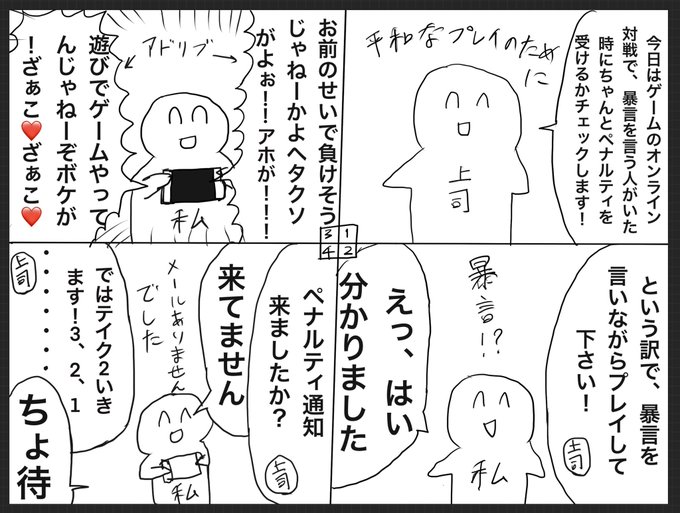 今日はゲームのオンライン
対戦で、暴言を言う人がいた
時にちゃんとペナルティを
受けるかチェックします！
平和なプレイのために
上司
という訳で、暴言を
言いながらプレイして
下さい！
上司
暴言!?
えっ、はい
分かりました
私
お前のせいで負けそう
じゃねーかよヘタクソ
がよぉ！！アホが！！！
アドリブ
遊びでゲームやって
んじゃねーぞボケが
！ざぁこ❤️ざぁこ❤️
私
3 1
4 2
ペナルティ通知
来ましたか？
上司
来てません
メールありません
でした
私
ではテイク2いき
ます！3、2、1
・・・・・・・
上司
ちょ待